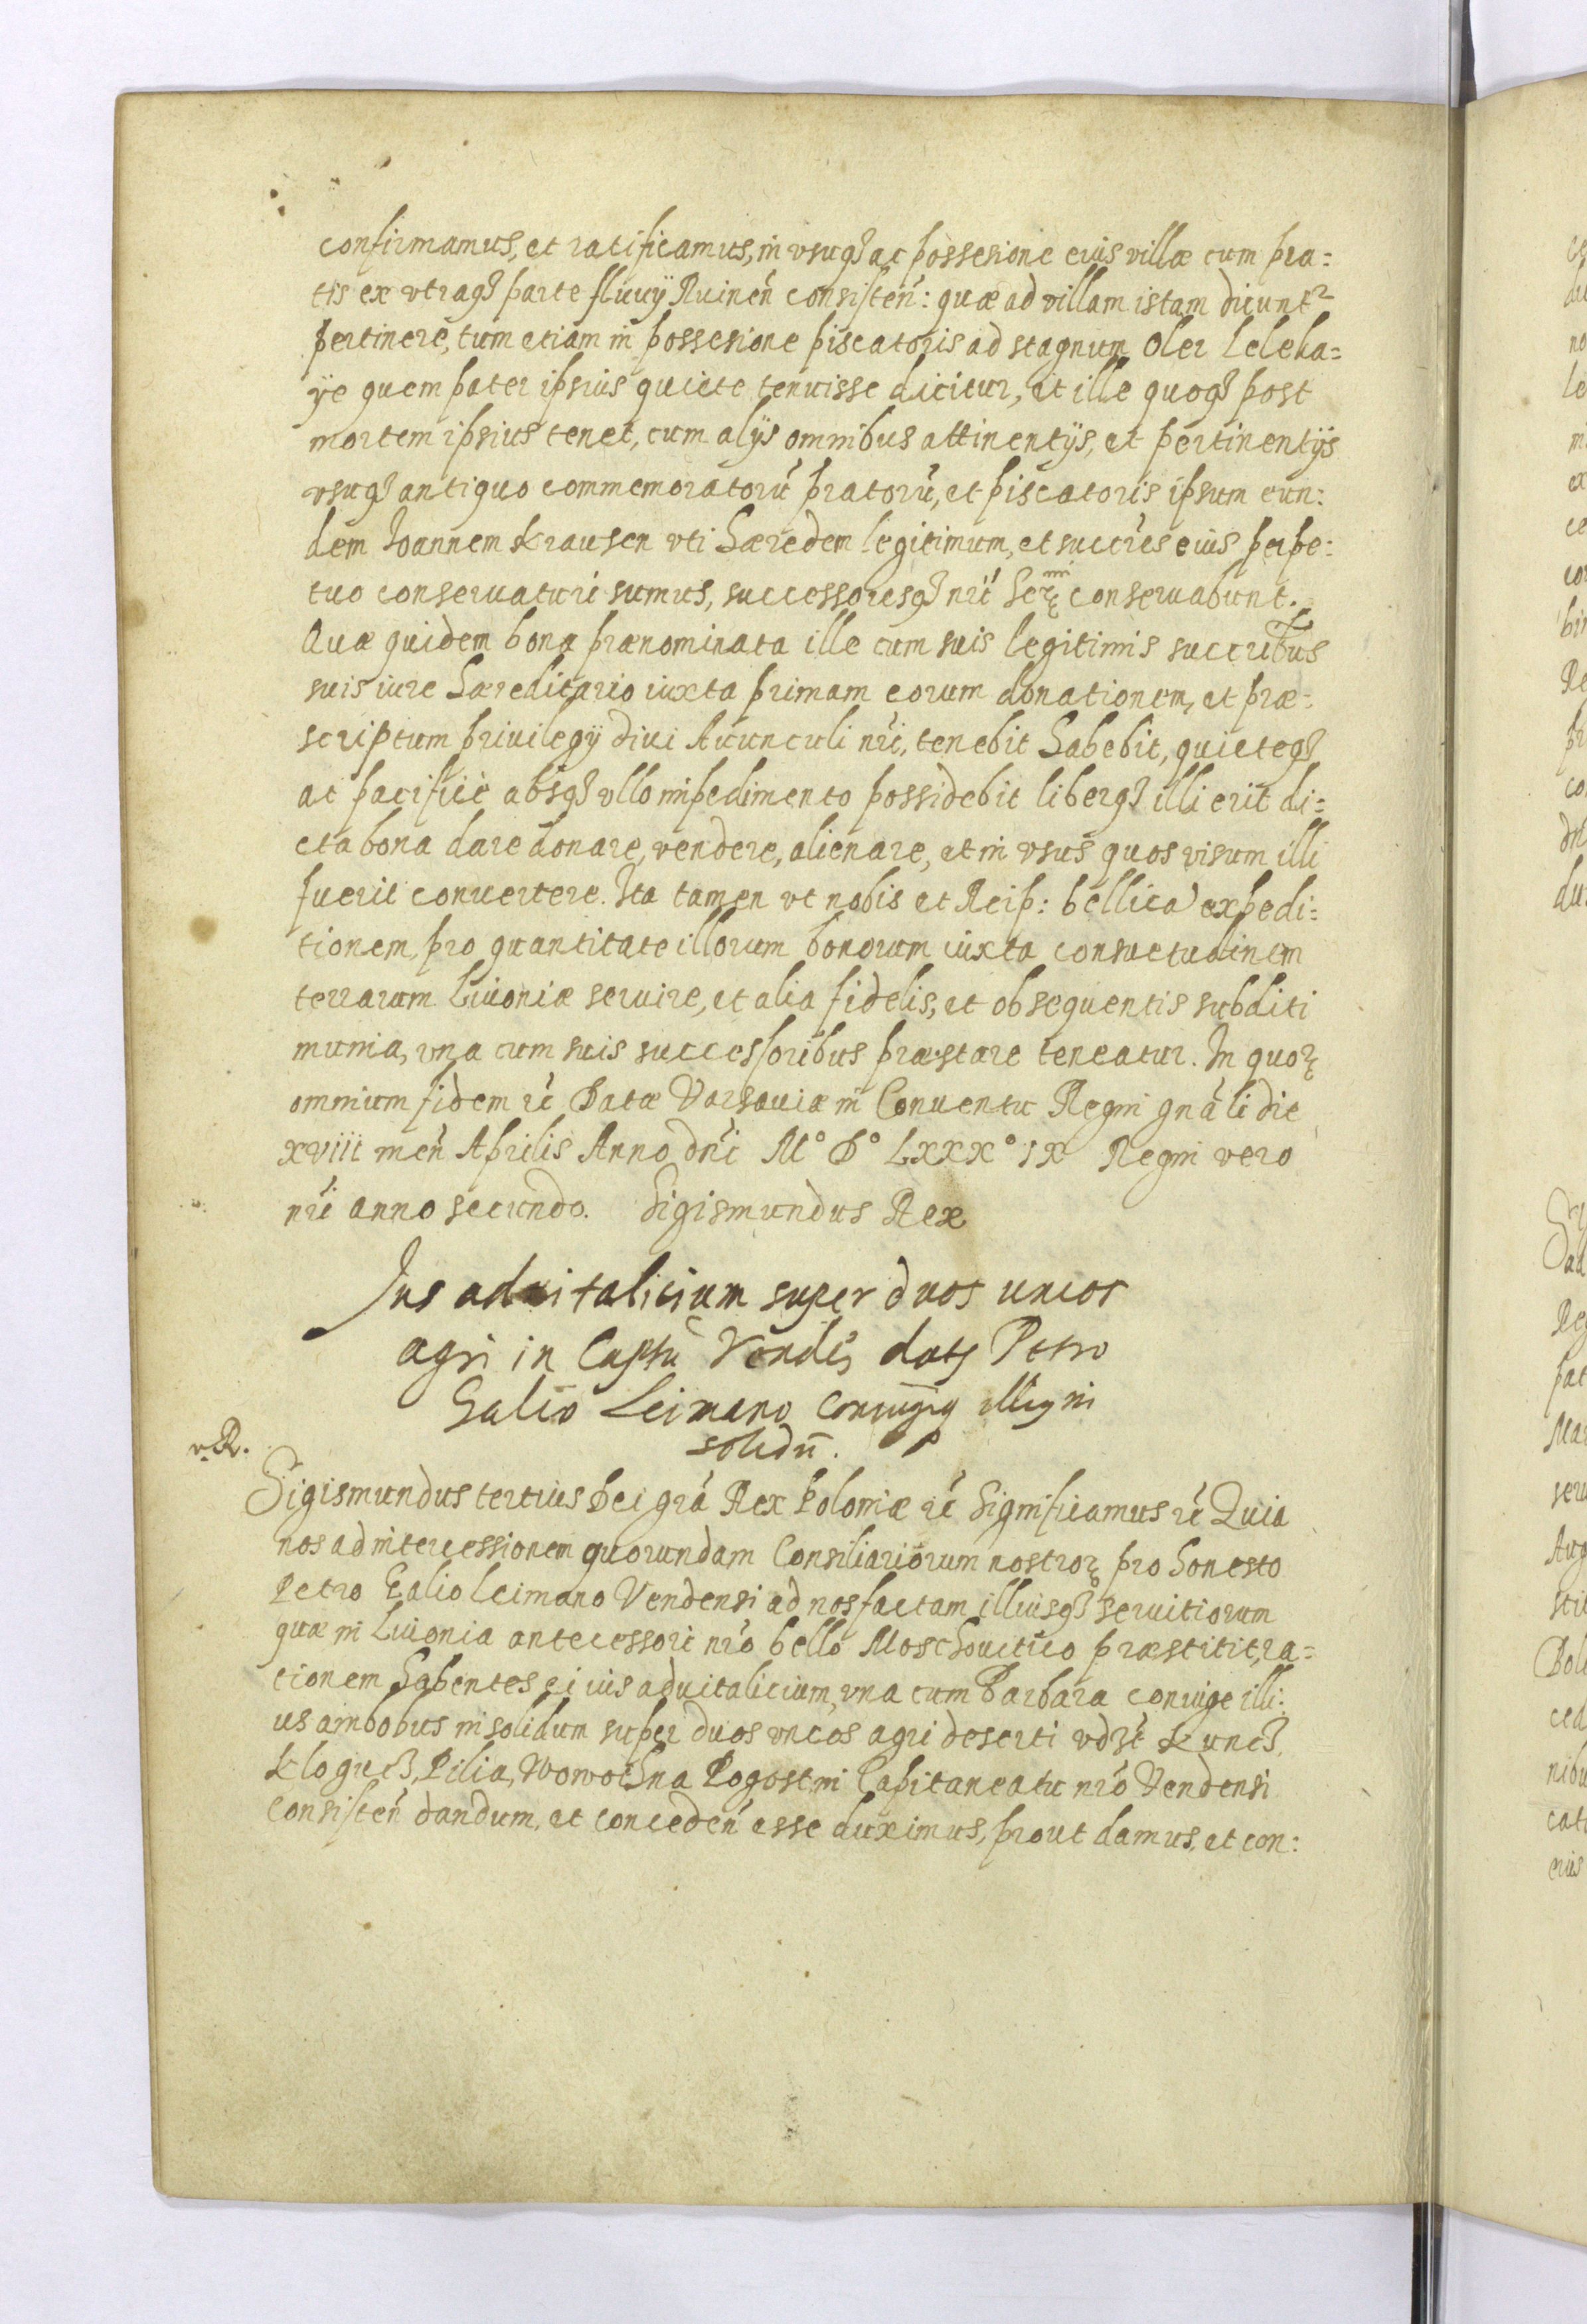 confirmamus, et ratificamus, in vsuq₃ ac possesione eius villæ cum pra:
tis ex vtraq₃ parte fluuÿ Ruinen̄ consisten̄: quæ ad villam istam dicunt²
pertinere, tum etiam in possesione piscatoris ad stagnum Oler Leleka=
ÿe quem pater ipsius quiete tenuisse dicitur, et ille quoq₃ post
mortem ipsius tenet, cum alÿs omnibus attinentÿs, et pertinentÿs
vsuq₃ antiquo commemoratorū pratorū, et piscatoris ipsum eun:
dem Joannem Krausen vti hæredem legitimum, et succr̄es eius perpe:
tuo conseruaturi sumus, successoresq₃ nr̄i conseruabunt.
Quæ quidem bona prænominata ille cum suis legitimis succribus
suis iure hæreditario iuxta primam eorum donationem, et præ:
scriptum priuilegÿ diui Auunculi nr̄i, tenebit habebit, quieteq₃
ac pacificè absq₃ vllo impedimento possidebit liberq₃ illi erit di=
cta bona dare donare, vendere, alienare, et in vsus quos visum illi
fuerit conuertere. Ita tamen vt nobis et Reip: bellicā expedi:
tionem, pro quantitate illorum bonorum iuxta consuetudinem
terrarum Liuoniæ seruire, et alia fidelis, et obsequentis subditi
munia, vna cum suis successoribus præstare teneatur. In quoꝝ
omnium fidem rč Datæ Varsauiæ in Conuentu Regni gn̄ali die
xviii men̄ Aprilis Anno dn̄i M° D° Lxxx° ix Regni vero
nr̄i anno secundo. Sigismundus Rex
Jus aduitalicium super duos uncos
agri in Captū Venden̄ Petro
Galio Leimano in
solidū.
Sigismundus tertius Dei grā Rex Poloniæ rč Significamus rč Quia
nos ad intercessionem quorundam Consiliariorum nostroꝝ pro honesto
Petro Galio Leimano Vendensi ad nos factam illiusq₃ seruitiorum
quæ in Liuonia antecessori nr̄o bello Moschouitico præstitit, ra=
tionem habentes ei ius aduitalicium, vna cum Barbara coniuge illi:
us ambobus in solidum super duos vncos agri deserti vdz̄t Kunch,
Kloguch, Pilia, Wowochna Pogost in Capitaneatu nr̄o Vendensi
Consisten̄ dandum, et conceden̄ esse duximus, prout damus, et con: